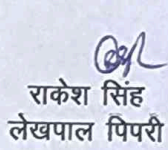 राकेश सिंह
लेखपाल पिपरी